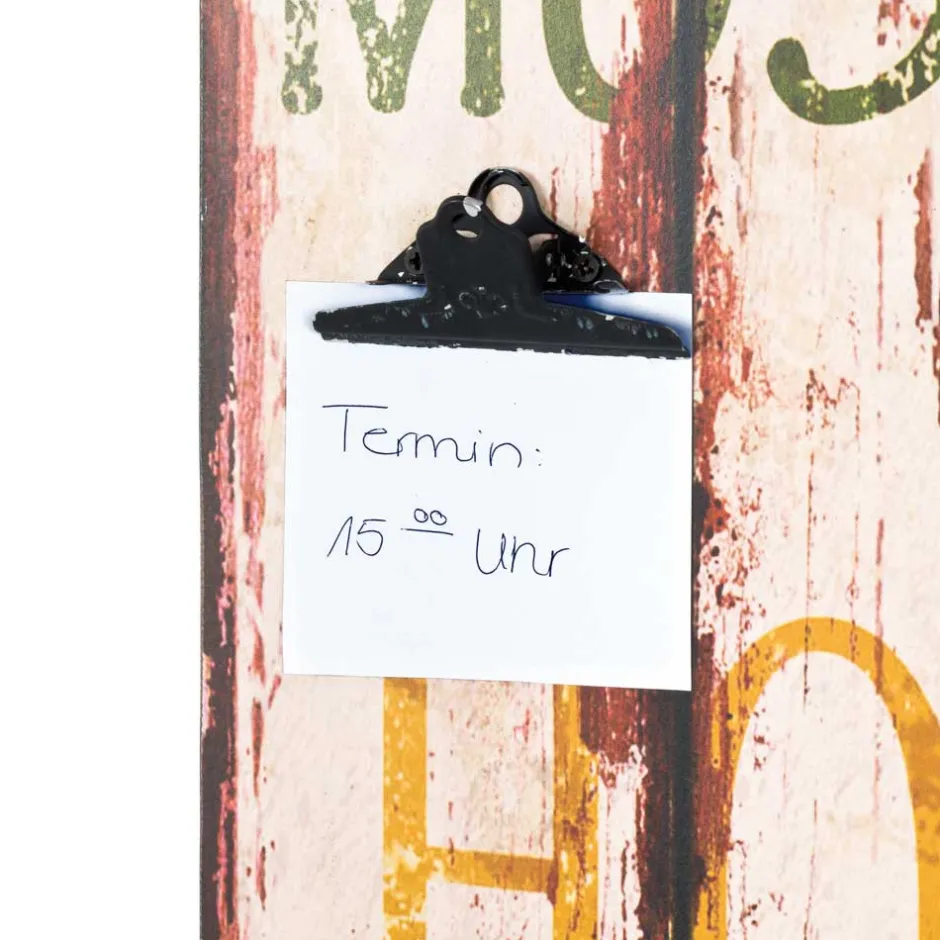 MOS
Termin:
15 00 Uhr
HO